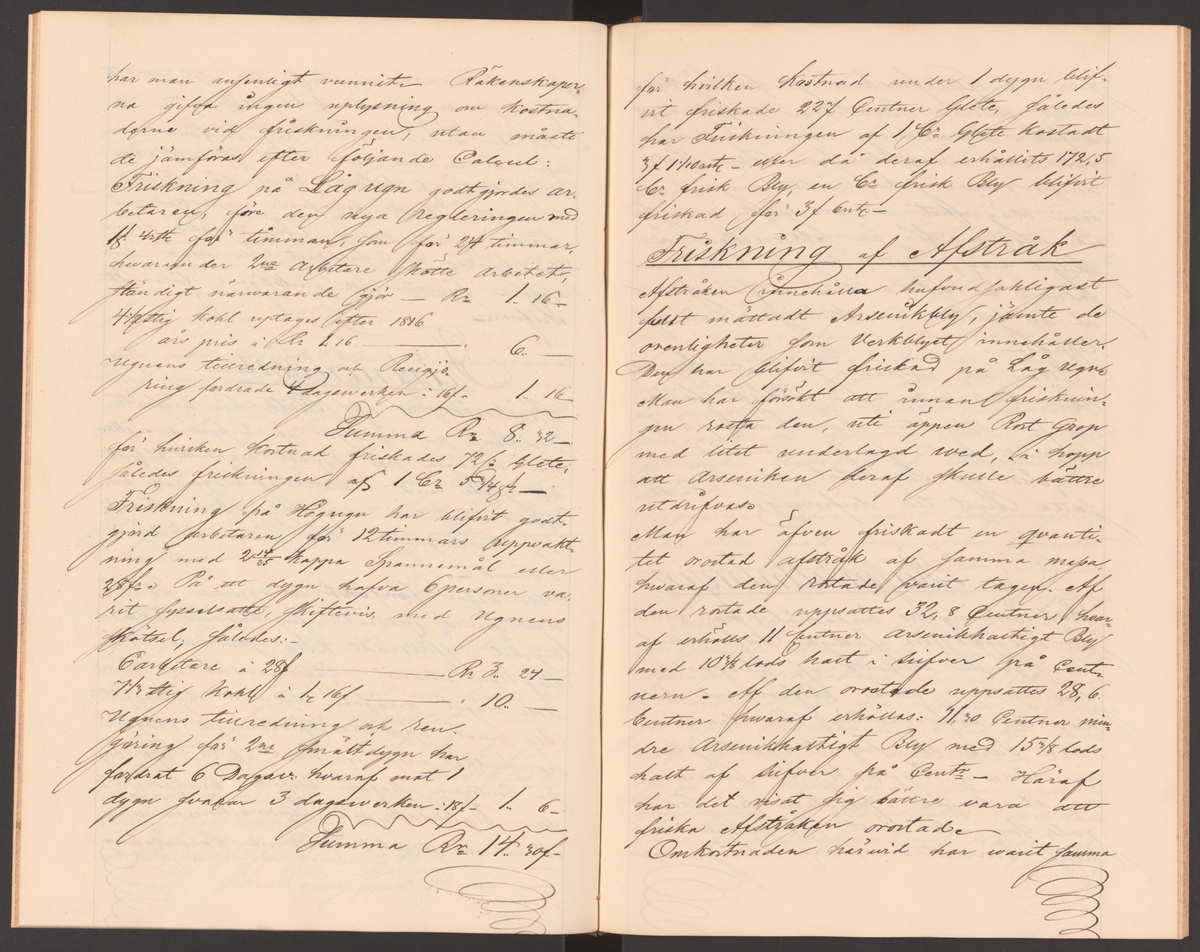 har man ansenligt vunnit. Räkenskaper-
na gifva ingen uplysning om kostna-
derne vid friskningen, utan måste
de jämföras efter följande Calcul:
Friskning på Lågugn godtgjordes ar-
betaren, före den nya regleringen med
för timman, som för 24 timmar,
hvarunder 2ne Arbetare skötte arbetet,
ständigt närvarande gjör — Rr 1. 16 —
kohl uptages efter 1816
års pris à Rr 1.16 — 6. —
Ugnens tillredning och Rengjö-
ring fordrade 4 dagsverken à 16f — 1. 16 —
Summa Rr 8. 32 —
för hvilken kostnad friskades 72 Cr Glete,
således friskningen af 1 Cr
Friskning på Högugn har blifvit godt-
gjord arbetaren för 12 timmars uppvakt-
ning med 2 14/25 kappa Spannemål eller
28f. På ett dygn hafva 6 personer va-
rit sysselsatte, skiftevis med Ugnens
skötsel, således:-
6 arbetare à 28f — Rr 3. 24 —
7 1/2 stig kohl à 1. 16f — 10. —
Ugnens tillredning och ren-
göring för 2ne smältdygn har
fordrat 6 Dagsv: hvaraf mot 1
dygn svarar 3 dagsverken à 18f — 1. 6 —
Summa Rr 14. 30f —
för hvilken kostnad under 1 dygn blif-
vit friskade 227 Centner Glete, således
har Friskningen af 1 Cr Glete kostadt
3f — eller då deraf erhållits 172,5
Cr frisk Bly, en Cr frisk Bly blifvit
friskad för 3f
Friskning af Afstråk
Afstråken innehålla hufvudsakligast
mättadt Arsenikbly, jämte de
orenligheter som Verkblyet innehåller.
Den har blifvit friskad på Låg Ugn.
Man har försökt att innan frisknin-
gen rosta den, uti öppen Rost Grop
med litet underlagd wed, i hopp
att Arseniken deraf skulle bättre
utdrifvas.
Man har äfven friskadt en qvanti-
tet orostad afstråk af samma massa
hwaraf den rostade varit tagen. Af
den rostade uppsattes 32,8 Centner hvar-
af erhölls 11 Centner arsenikhaltigt Bly
med 10 3/8 lods halt i silfver på Cent-
nern. Af den orostade uppsattes 28,6
Centner hwaraf erhöllos: 11,30 Centner min-
dre Arsenikhaltigt Bly med 15 3/8 lods
halt af silfver på Centr — Häraf
har det visat sig bättre vara att
friska Afstråken orostad.
Omkostnaden härwid har warit samma